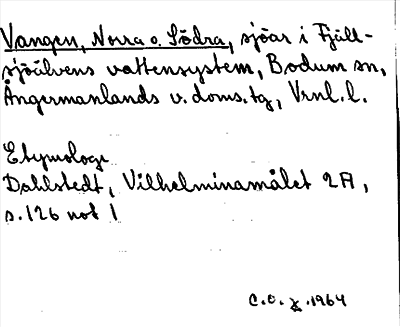 Vangen, Norra o. Södra, sjöar i Fjäll-
sjöälvens vattensystem, Bodum sn,
Ångermanlands v. doms.tg, Vrnl. l.
Etymologi
Dahlstedt, Vilhelminamålet 2A,
s. 126 not 1
C.O. 1964